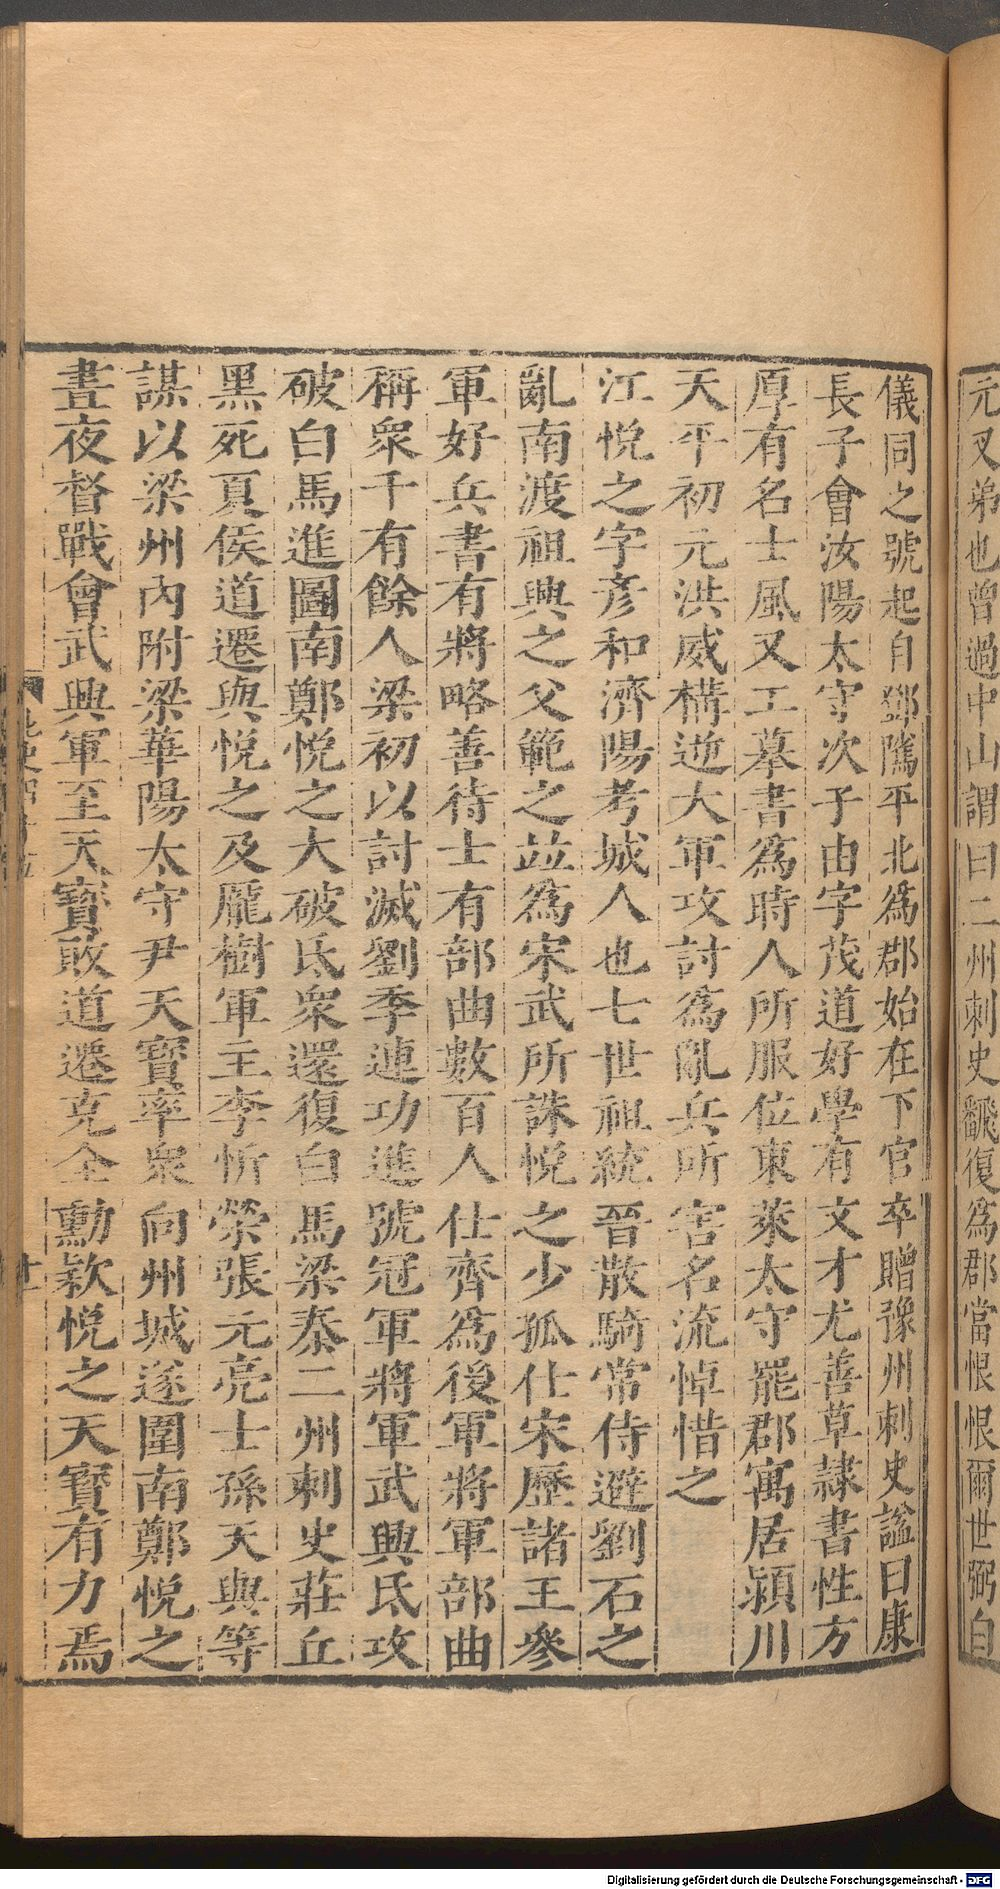 元叉弟也曾過中山謂曰二州刺史翻復為郡當恨恨爾世弼自
儀同之號起自鄧隲平北為郡始在下官卒贈豫州刺史諡曰康
長子會汝陽太守次子由字茂道好學有文才尤善草隸書性方
厚有名士風又工摹書為時人所服位東萊太守罷郡寓居潁川
天平初元洪威構逆大軍攻討為亂兵所害名流悼惜之
江悅之字彥和濟陽考城人也七世祖統晉散騎常侍避劉石之
亂南渡祖興之父範之並為宋武所誅悅之少孤仕宋歷諸王參
軍好兵書有將略善待士有部曲數百人仕齊為後軍將軍部曲
稱衆千有餘人梁初以討滅劉季連功進號冠軍將軍武興氐攻
破白馬進圖南鄭悅之大破氐衆還復白馬梁泰二州刺史莊丘
黑死夏侯道遷與悅之及龐樹軍主李忻榮張元亮士孫天與等
謀以梁州內附梁華陽太守尹天寶率衆向州城遂圍南鄭悅之
晝夜督戰會武興軍至天寶敗道遷克全勳款悅之天寶有力焉
十一